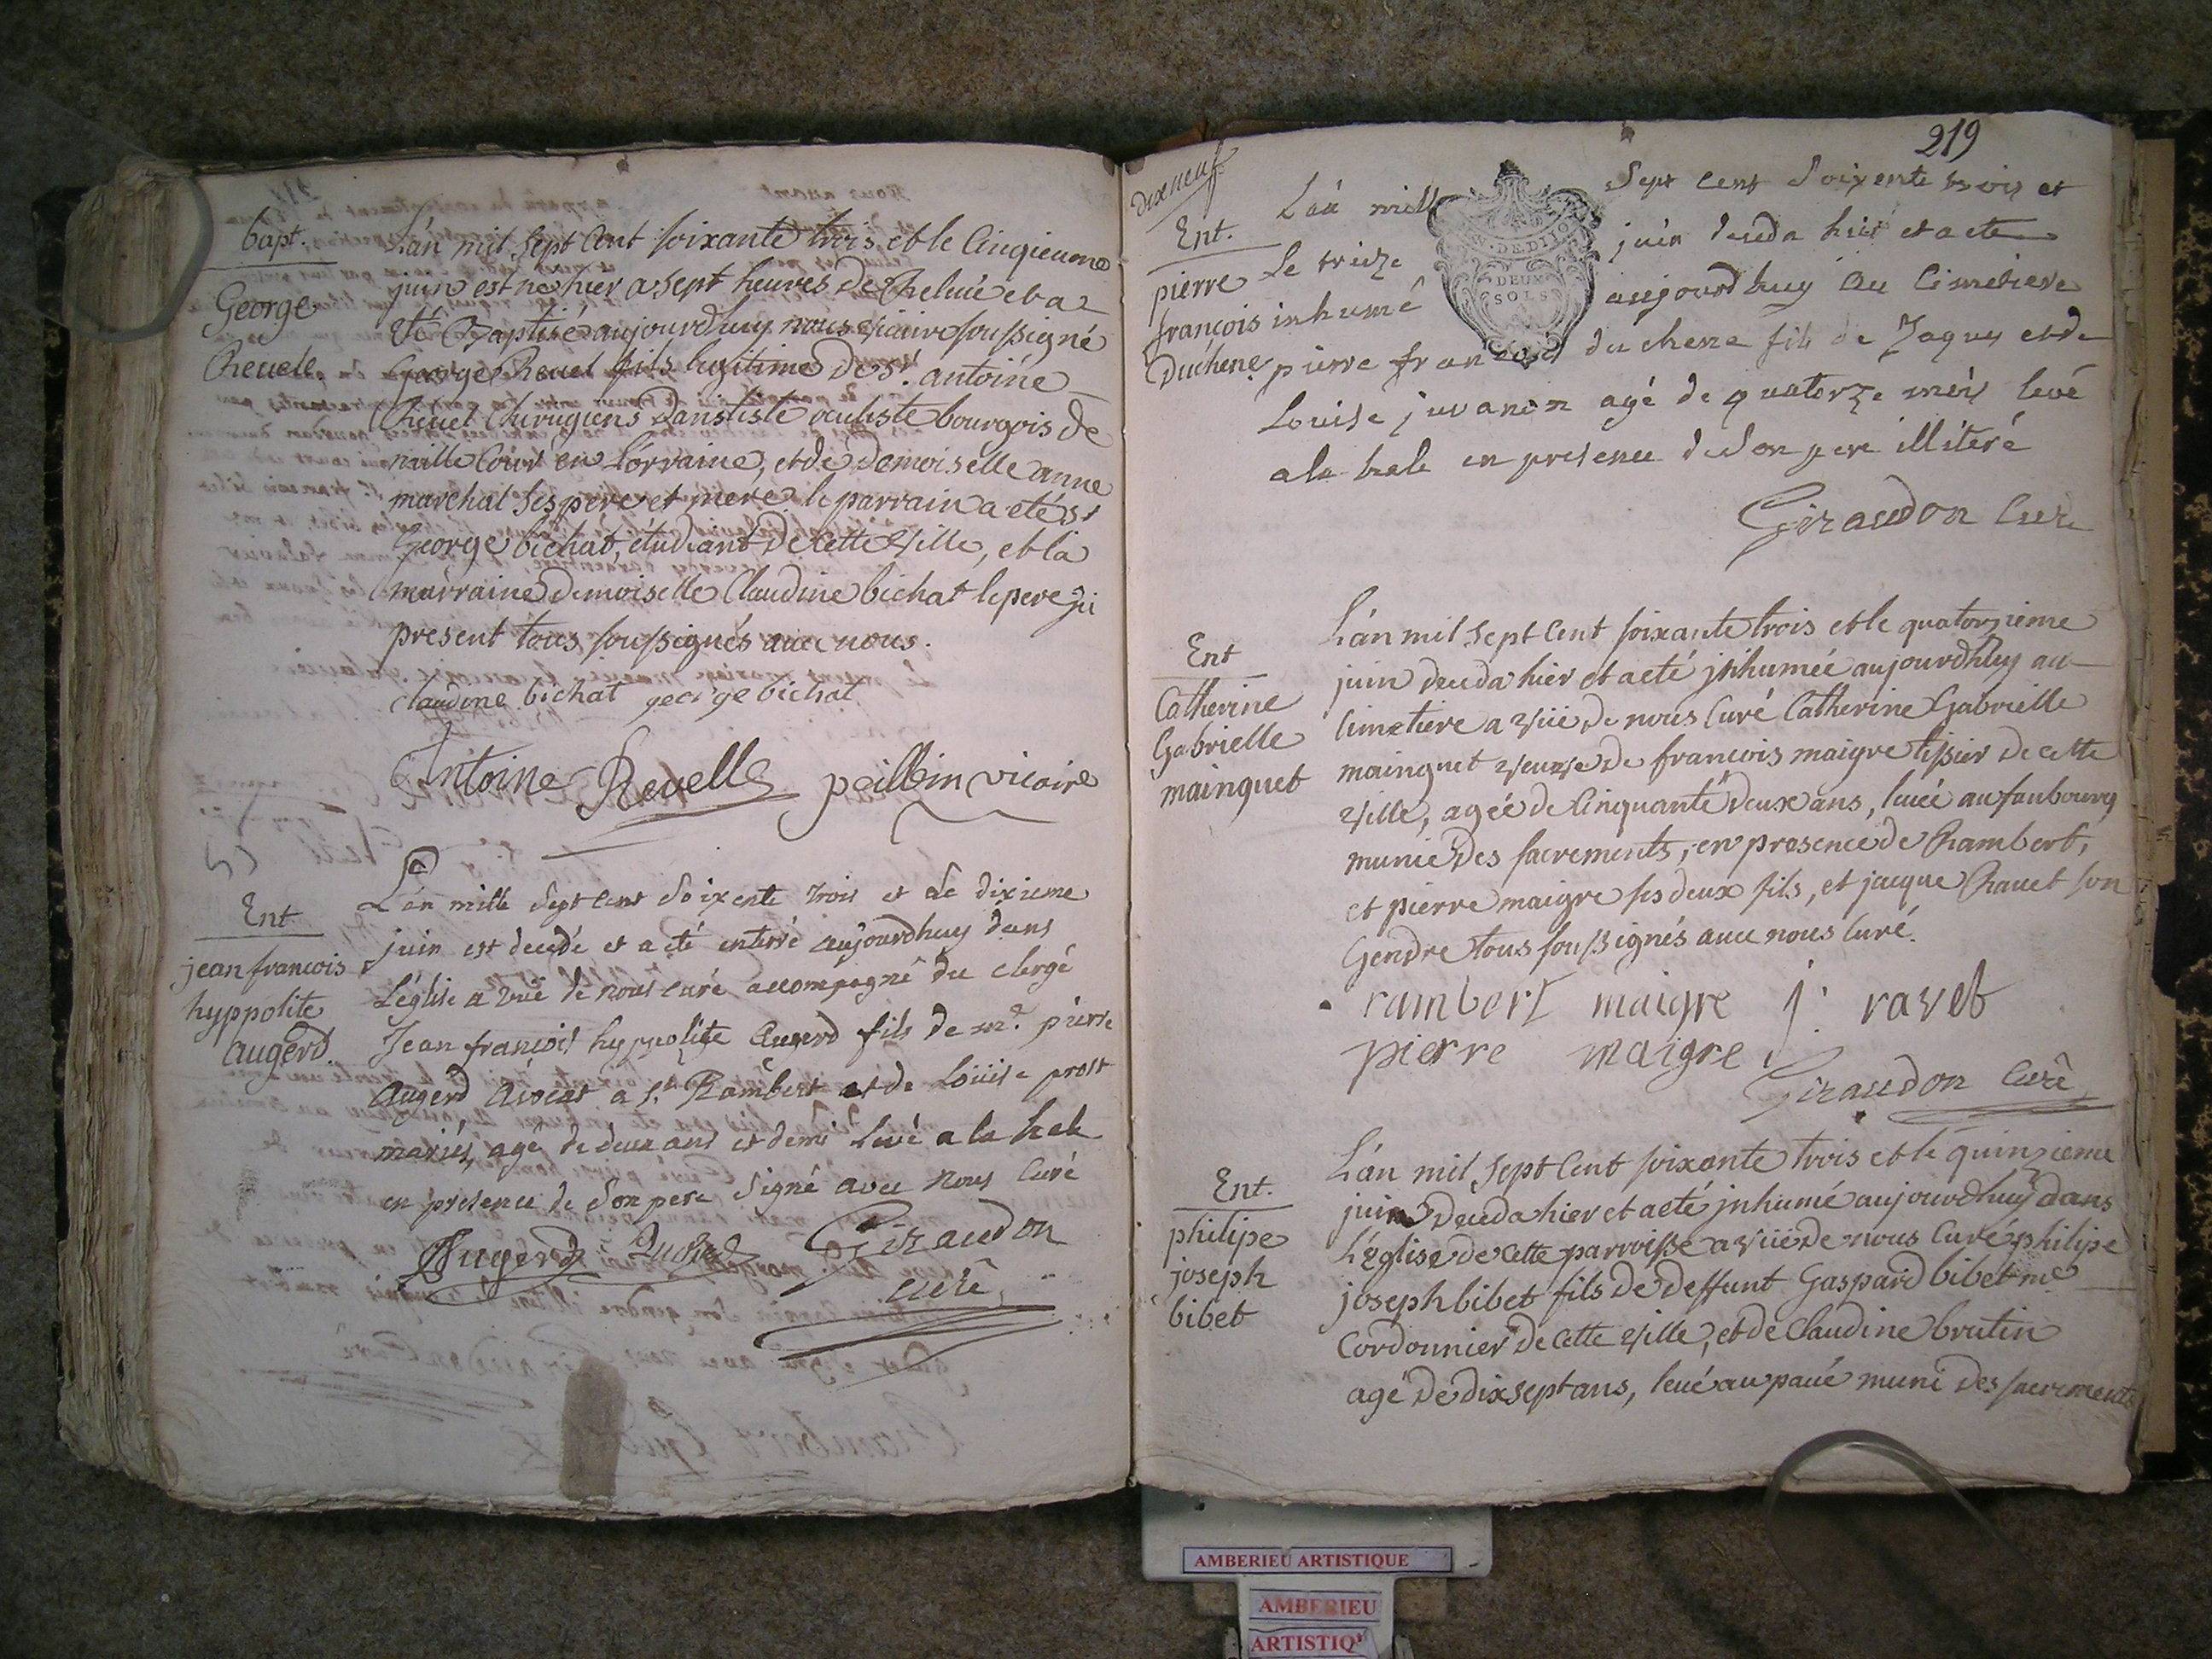 bapt.
George
Reuelle
L'án mil sept Cent soixante trois et le Cinqieume
juin est ne hier a sept heures de Releuée et a
eté Baptisé aujourdhuy nous vicaire soussigné
George Reuel fils legitime de Sr. antoine
Reuel Chirugiens Dantiste oculiste bourgois de
en Lorraine, et de Demoiselle anne
marchal ses pere et mere le parrain a eté Sr
George bichat, étudiant de cette ville, et la
marraine demoiselle Claudine bichat le pere ji
present tous soussignés auec nous.
claudine bichat george bichat
Antoine Revelle peillein vicaire
Ent
jean francois
hyppolite
augerd.
L'án mille Sept Cent Soixente trois et Le dixieme
juin est decedé et a eté enterré aujourdhuy dans
L'église a vuë de nous curé accompagné du clergé
Jean françois hyppolite augerd fils de me. pierre
augerd avocat a St. Rambert et de Loüise prost
mariés, agé de deux ans et demi levé a la hale
en presence de son pere signé avec nous Curé
Augerd Giraudon
curé
219
dixneuf
Ent.
pierre
françois
Duchene
L'án mille Sept Cent Soixente trois et
Le treize juin deceda hier et a ete
inhumé aujourdhuy au Cimetiere
pierre francois duchene fils de Jaques et de
Louise juvanon agé de quatorze mois levé
a la hale en presence de son pere illiteré
Giraudon Curé
W. DE DIJON
DEUX
SOLS
Ent
Catherine
Gabrielle
mainguet
L'án mil sept Cent soixante trois et le quatorzieme
juin deceda hier et a eté jnhumée aujourdhuy au
Cimetiere a vüe de nous Curé Catherine Gabrielle
mainguet veuve de francois maigre tissier de cette
ville, agée de Cinquante deux ans, leuée au faubourg
munie des sacrements, en presence de Rambert,
et pierre maigre ses deux fils, et jacque Rauet son
Gendre tous soussignés auec nous Curé.
rambert maigre j: ravet
pierre maigre
Giraudon Curé
Ent.
philipe
joseph
bibet
L'án mil sept Cent soixante trois et le quinzieme
juin deceda hier et a eté jnhumé aujourdhuy dans
L'Eglise de cette parroisse a vüe de nous Curé philipe
joseph bibet fils de deffunt Gaspard bibet me
Cordonnier de cette ville, et de Claudine brutin
agé de dix sept ans, leué au paué muni des sacrements
AMBERIEU ARTISTIQUE
AMBERIEU
ARTISTIQ